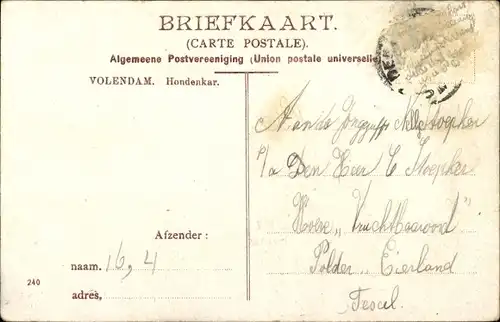 BRIEFKAART.
(CARTE POSTALE).
Algemeene Postvereeniging (Union postale universelle)
VOLENDAM. Hondenkar.
Aan de
p/a Den Heer C
Hoeve „Vruchtbaaroord
Polder „ Eierland
Texel.
Afzender :
naam. 16,4
240
adres,